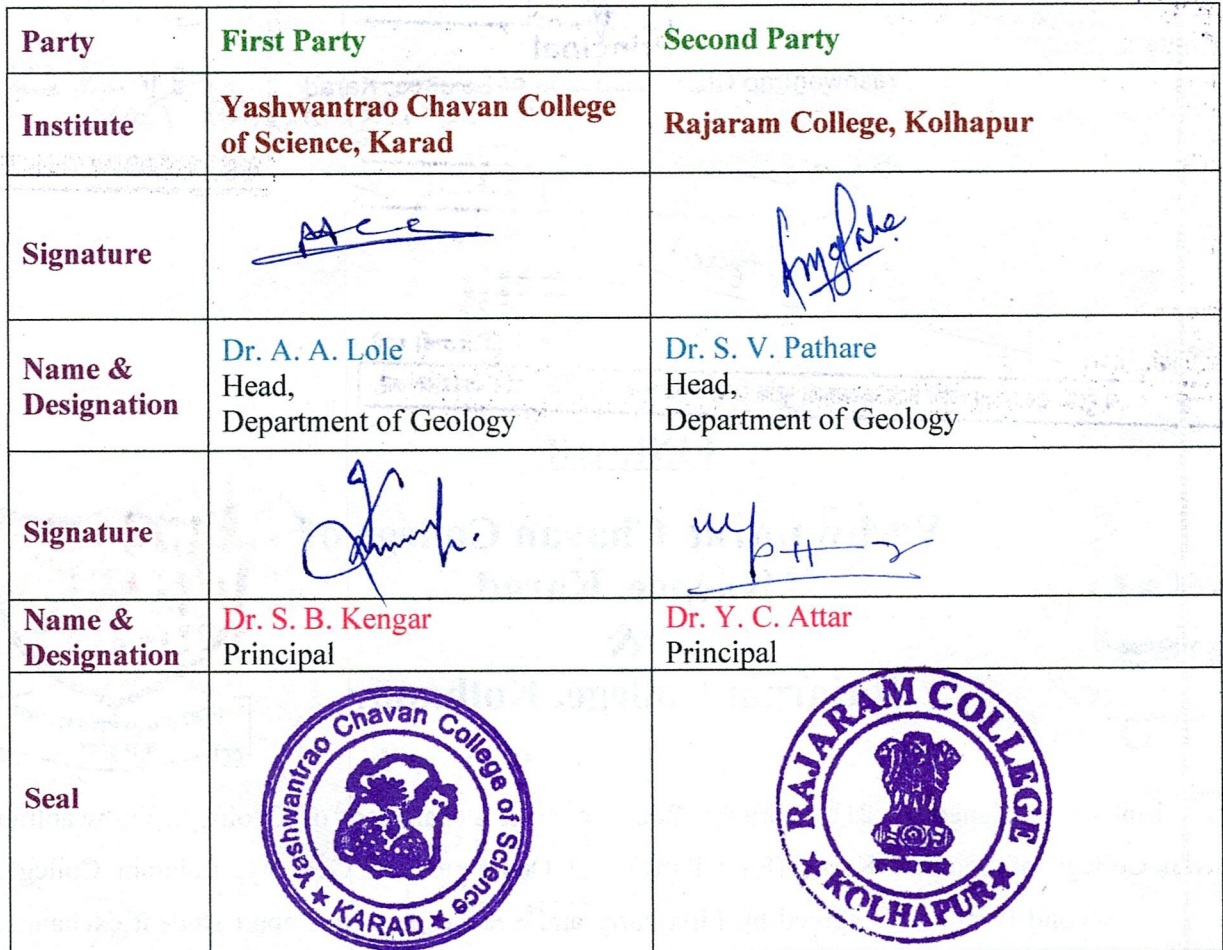 Party First Party Second Party
Institute Yashwantrao Chavan College of Science, Karad Rajaram College, Kolhapur
Signature
Name & Designation Dr. A. A. Lole Dr. S. V. Pathare
Head, Head,
Department of Geology Department of Geology
Signature
Name & Designation Dr. S. B. Kengar Dr. Y. C. Attar
Principal Principal
Seal
Yashwantrao Chavan College of Science
★ KARAD ★
RAJARAM COLLEGE
★ KOLHAPUR ★